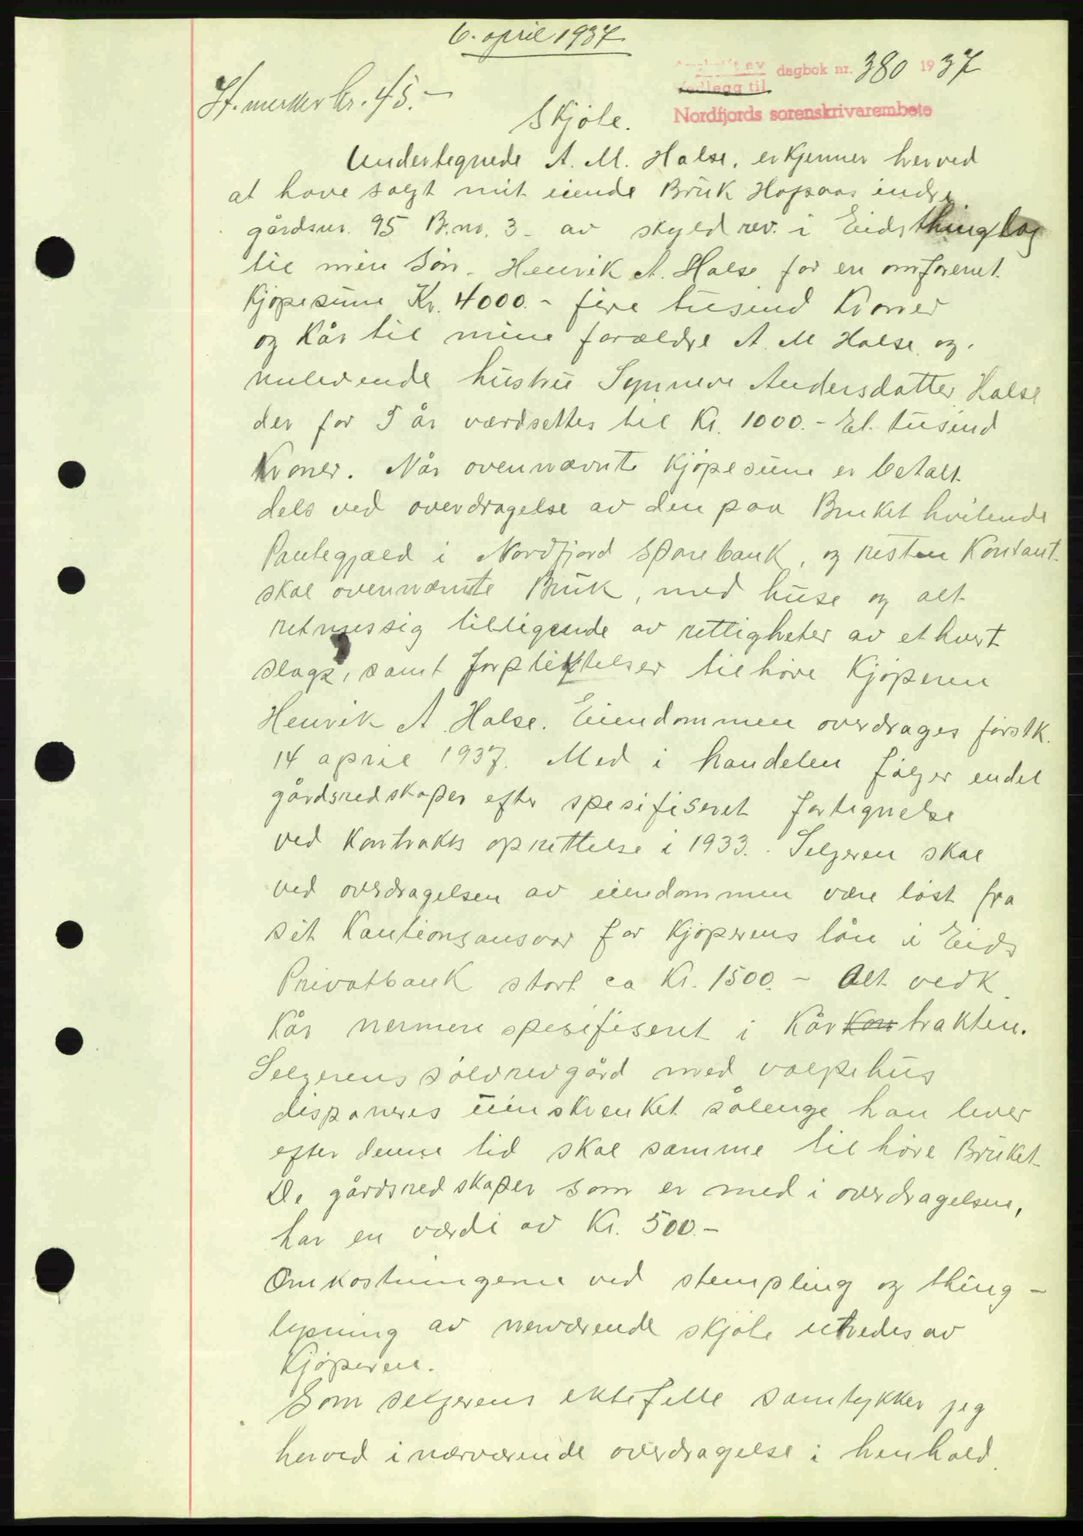 6. april 1937
Avskrift av dagbok nr. 380 1937
Vedlegg til
Nordfjords sorenskrivarembete
St. merker kr. 45.-
Skjøte.
Undertegnede A. M. Halse, erkjenner herved
at have solgt mit eiende Bruk Hopsaas indre
gårdsnr. 95 B.nr. 3 - av skyld rev. i Eids thinglag
til min Søn - Henrik A. Halse for en omforenet
Kjøpesum Kr. 4000.- fire tusind Kroner
og Kår til mine forældre A. M Halse og
nulevende hustru Synneve Andersdatter Halse
der for 5 år værdsettes til Kr. 1000.- Et tusind
Kroner. Når ovennævnte Kjøpesum er betalt
dels ved overdragelse av den paa Bruket hvilende
Pantegjæld i Nordfjord Sparebank, og resten Kontant
skal ovennævnte Bruk, med huse og alt
retmessig tilligende av rettigheter av ethvert
slags, samt forpliktelser tilhøre Kjøperen
Henrik A. Halse. Eiendommen overdrages førstk.
14 april 1937. Med i handelen følger endel
gårdsredskaper efter spesifiseret fortegnelse
ved Kontrakts oprettelse i 1933. Selgeren skal
ved overdragelsen av eiendommen være løst fra
sit Kautionsansvar for Kjøperens lån i Eids
Privatbank stort ca Kr. 1500.- Alt vedk.
Kår nermere spesifiseret i Kårkontrakten.
Selgerens sølvrevgård med valpehus
disponeres uinskrenket sålenge han lever
efter denne tid skal samme tilhøre Bruket
De gårdsredskaper som er med i overdragelsen,
har en værdi av Kr. 500.-
Omkostningerne ved stempling og thing-
lysning av nerværende skjøte utredes av
Kjøperen.
Som selgerens ektefelle samtykker jeg
herved i nærværende overdragelse i henhold